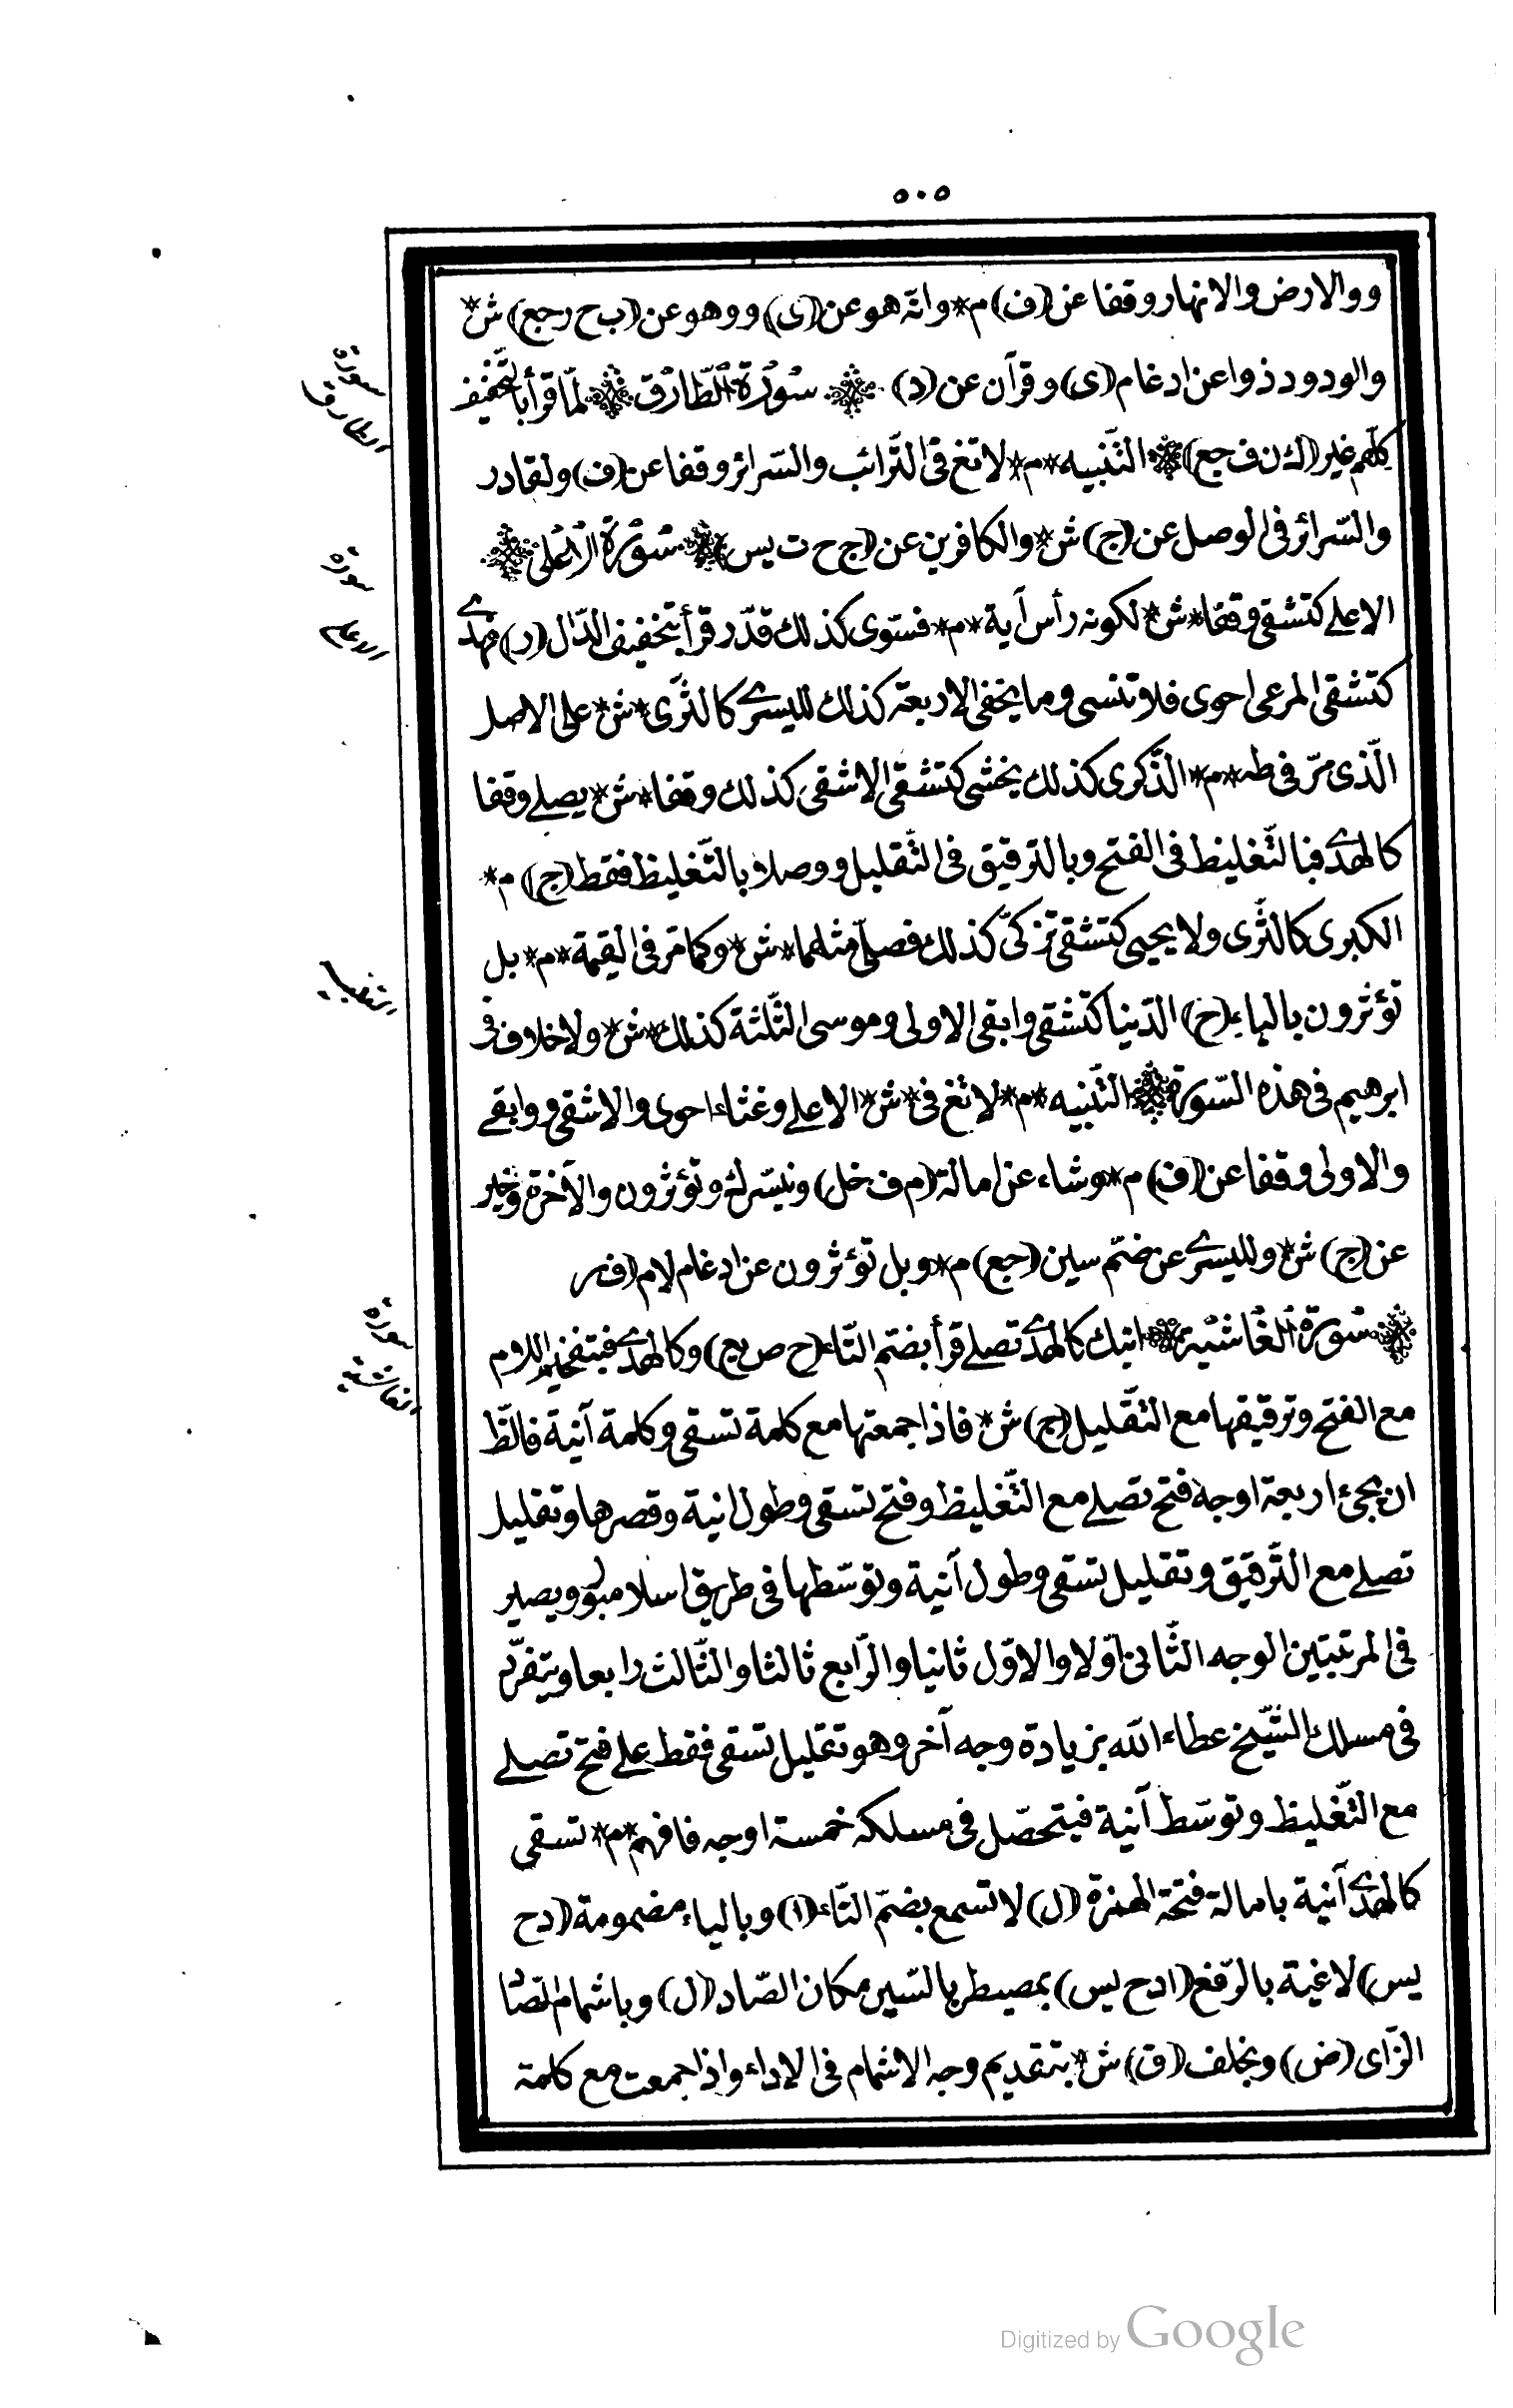 ٥٠٥
ووالارض والانهار وقفا عن (ف) م * وانّه هو عن (ى) ووهو عن (ب ح رجع) ش *
والودود ذوا عن ادغام (ى) وقرآن عن (د) سُورَةُ الطَّارق لمّا قرأ بالتّخفيف
كلّهم غير (ك ن ف جع) التّنبيه * م * لا تغ فى التّرائب والسّرائر وقفا عن (ف) ولقادر
والسّرائر فى الوصل عن (ج) ش * والكافرين عن (ج ح ت يس) سُورَةُ الاَعْلى
الاعلى كتشقى وقفا * ش * لكونه رأس آية * م * فسوّى كذلك قدّر قرأ بتخفيف الدّال (ر) فهدى
كتشقى المرعى احوى فلا تنسى وما يخفى الاربعة كذلك لليسرى كالثّرى * ش * على الاصل
الّذى مرّ فى طه * م * الذّكرى كذلك يخشى كتشقى الاشقى كذلك وقفا * ش * يصلى وقفا
كالهدى فبالتّغليظ فى الفتح وبالترقيق فى التّقليل ووصلا بالتّغليظ فقط (ج) م *
الكبرى كالثّرى ولا يحيى كتشقى تزكّى كذلك فصلّى مثلها * ش * وكما مرّ فى القيمة * م * بل
تؤثرون بالياء (ح) الدّنيا كتشقى وابقى الاولى وموسى الثّلثة كذلك * ش * ولا خلاف فى
ابرهيم فى هذه السّورة التّنبيه * م * لا تغ فى * ش * الاعلى وغثاء احوى والاشقى ووابقى
والاولى وقفا عن (ف) م * وشاء عن امالة (م ف خل) ونيسّرك وتؤثرون والآخرة وخير
عن (ج) ش * ولليسرى عن ضمّ سين (جع) م * وبل تؤثرون عن ادغام لام (ف ر
سُورَةُ الغَاشيَة اتيك كالهدى تصلى قرأ بضمّ التّاء (ح ص يع) وكالهدى فبتفخيم اللام
مع الفتح وترقيقها مع التّقليل (ج) ش * فاذا جمعتها مع كلمة تسقى وكلمة آنية فالظّ
ان يجئ اربعة اوجه فتح تصلى مع التّغليظ وفتح تسقى وطول انية وقصرها وتقليل
تصلى مع التّرقيق وتقليل تسقى وطول آنية وتوسّطها فى طريق اسلامبول ويصير
فى المرتبتين الوجه الثّانى اوّلا والاوّل ثانيا والرّابع ثالثا والثّالث رابعا ويتفرّد
فى مسلك الشّيخ عطاء الله بزيادة وجه آخر وهو تقليل تسقى فقط على فتح تصلى
مع التّغليظ وتوسّط آنية فيتحصّل فى مسلكه خمسة اوجه فافهم * م * تسقى
كالهدى آنية بامالة فتحة الهمزة (ل) لا تسمع بضمّ التّاء (ا) وبالياء مضمومة (دح
يس) لاغية بالرّفع (ادح يس) بمصيطر بالسّين مكان الصّاد (ل) وباشمام الصّاد
الزّاى (ض) وبخلف (ق) ش * بتقديم وجه الاشمام فى الاداء واذا جمعت مع كلمة
سورة
الطارق
سورة
الاعلى
التنبيه
سورة
الغاشية
Digitized by Google